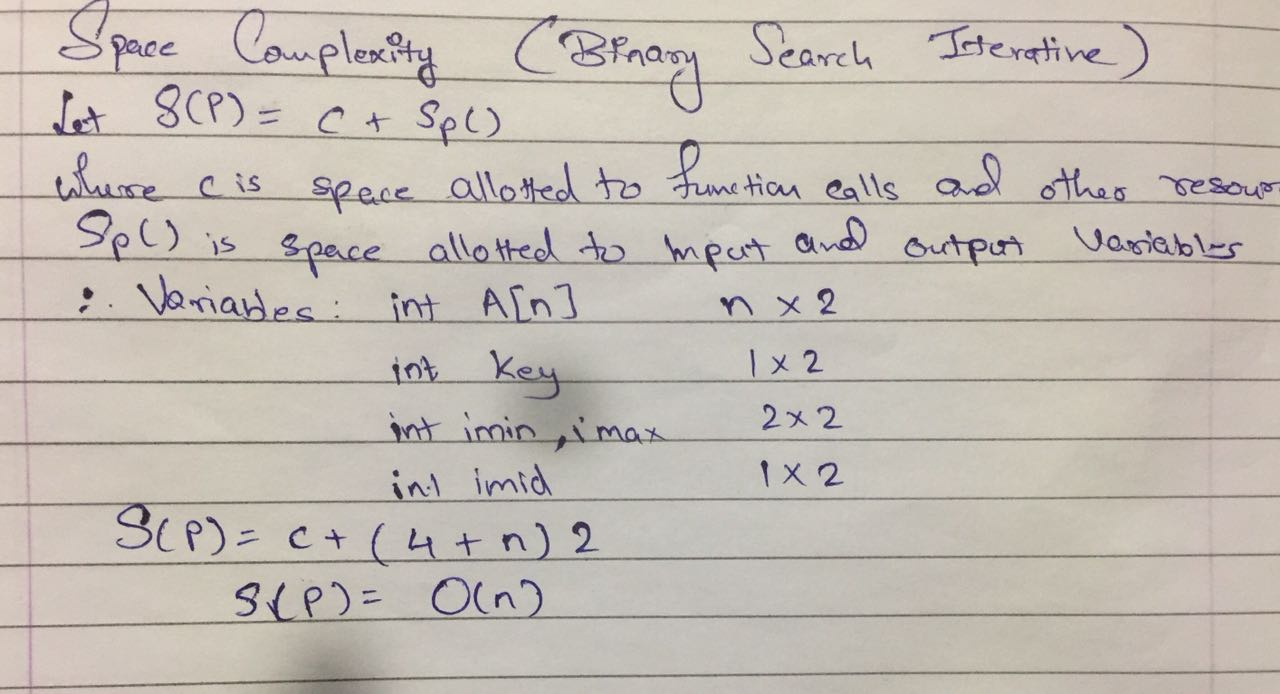 Space Complexity (Binary Search Iterative)
Let S(P) = C + Sp()
where c is space allotted to function calls and other resour
Sp() is space allotted to Input and output Variables
∴ Variables: int A[n] n × 2
int Key 1 × 2
int imin, imax 2 × 2
int imid 1 × 2
S(P) = c + (4 + n) 2
S(P) = O(n)